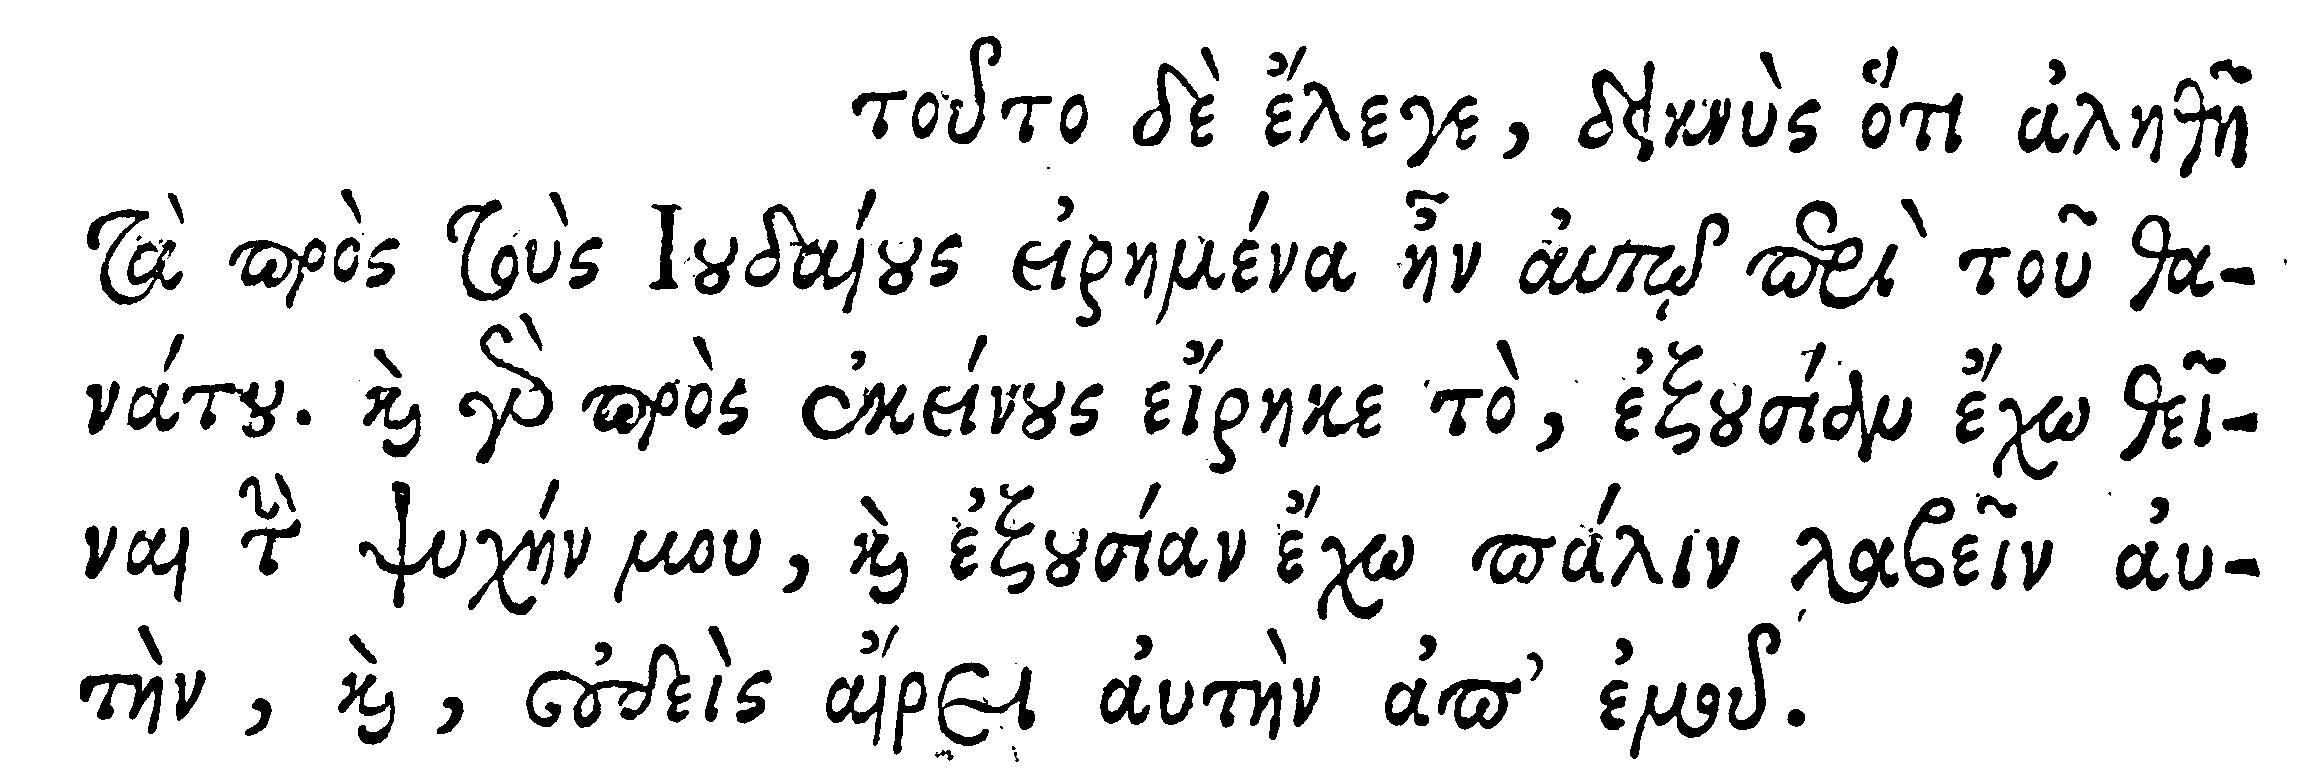 τοῦτο δὲ ἔλεγε, δεικνὺς ὅτι ἀληθῆ
τὰ πρὸς τοὺς Ιουδαίους εἰρημένα ἦν ἀυτῷ περὶ τοῦ θα-
νάτου. καὶ γὰρ πρὸς ἐκείνους εἴρηκε τὸ, ἐξουσίαν ἔχω θεῖ-
ναι τὴν ψυχήν μου, καὶ ἐξουσίαν ἔχω πάλιν λαβεῖν ἀυ-
τὴν, καὶ, οὐδεὶς αἴρει ἀυτὴν ἀπ’ ἐμοῦ.